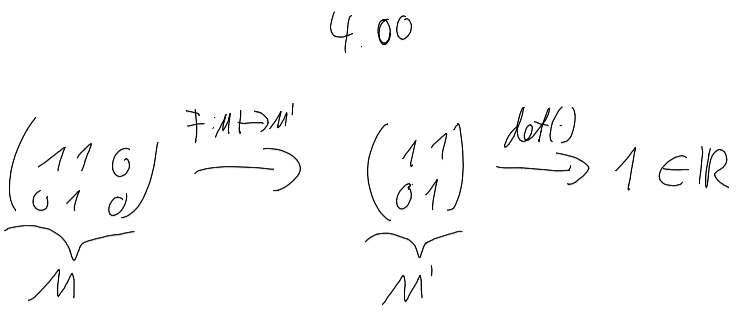 4.00
(1 1 0
0 1 0) F: M ↦ M' → (1 1
0 1) det(·) → 1 ∈ ℝ
M M'